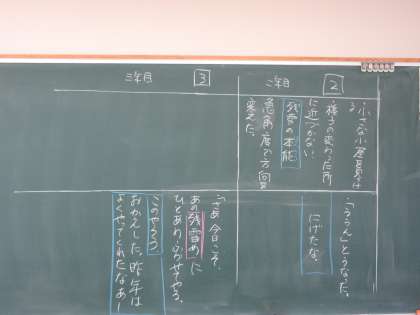 2
二年目
・小さな小屋
・様子の変わった所
に近づかない
残雪の本能
急角度で方向を
変えた。
「ううん」とうなった。
にげたな。
3
三年目
「さあ、今日こそ、
あの残雪めに
ひとあわふかせてやる。
このやろう
昨年は
よくやってくれたなあー